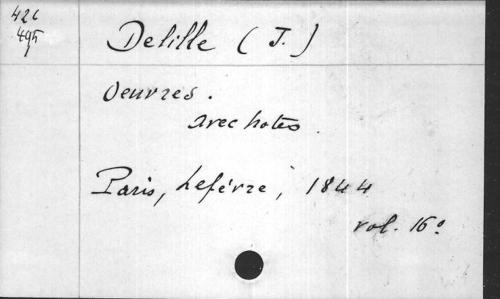 426
495
Delille (J.)
Oeuvres.
avec notes.
Paris, Lefévre, 1844
vol. 16°